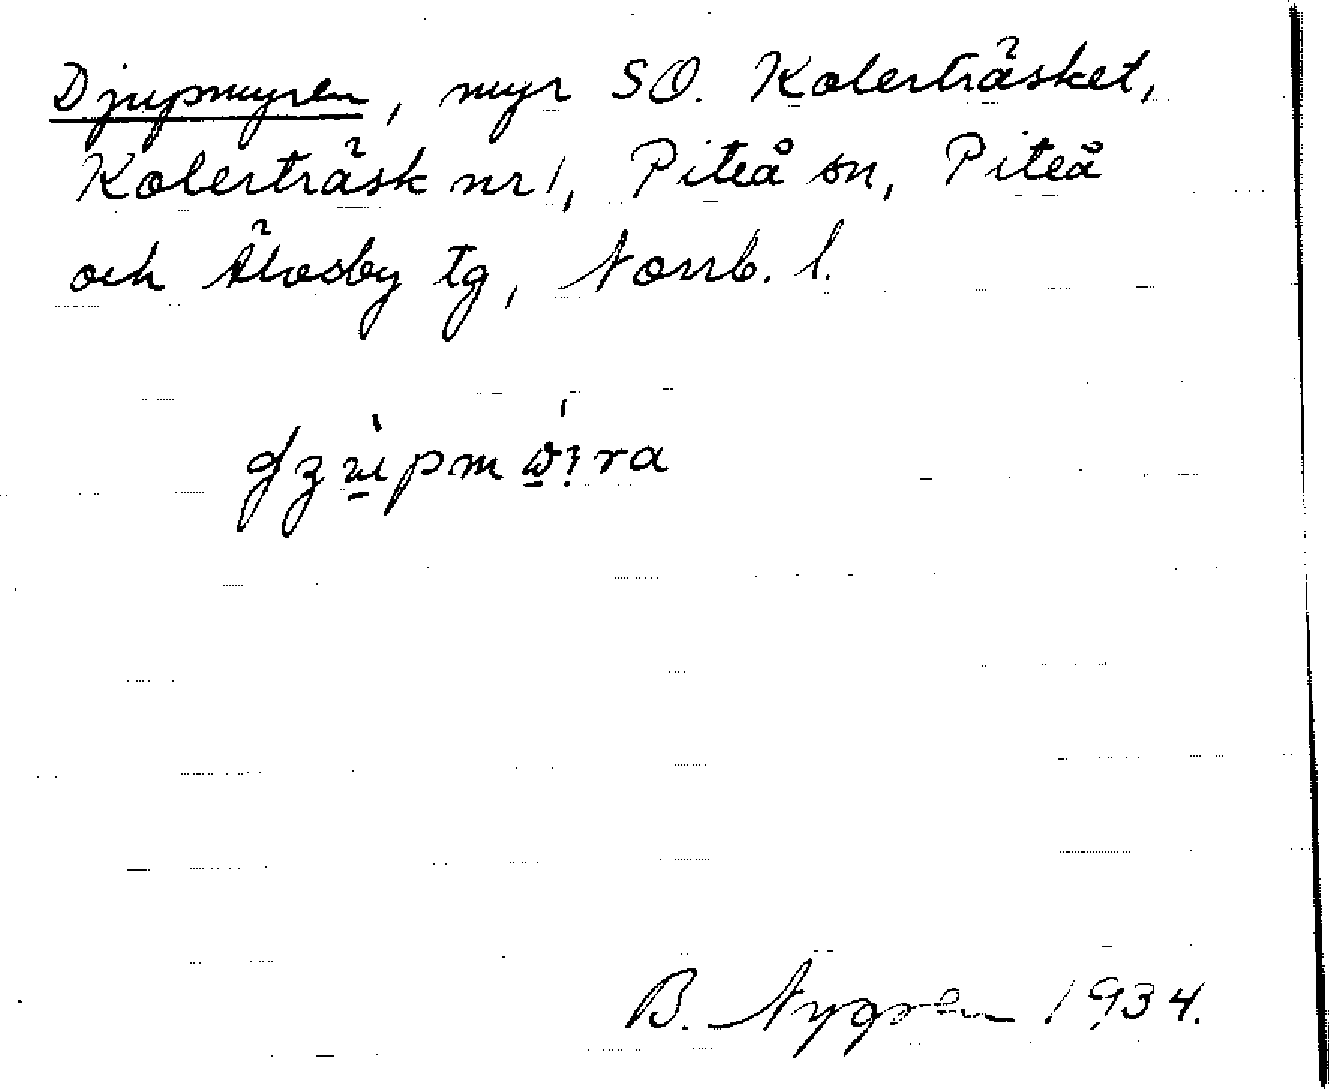 Djupmyren, myr SO. Kolerträsket,
Kolerträsk nr 1, Piteå sn, Piteå
och Älvsby tg, Norrb. l.
B. Nygren 1934.